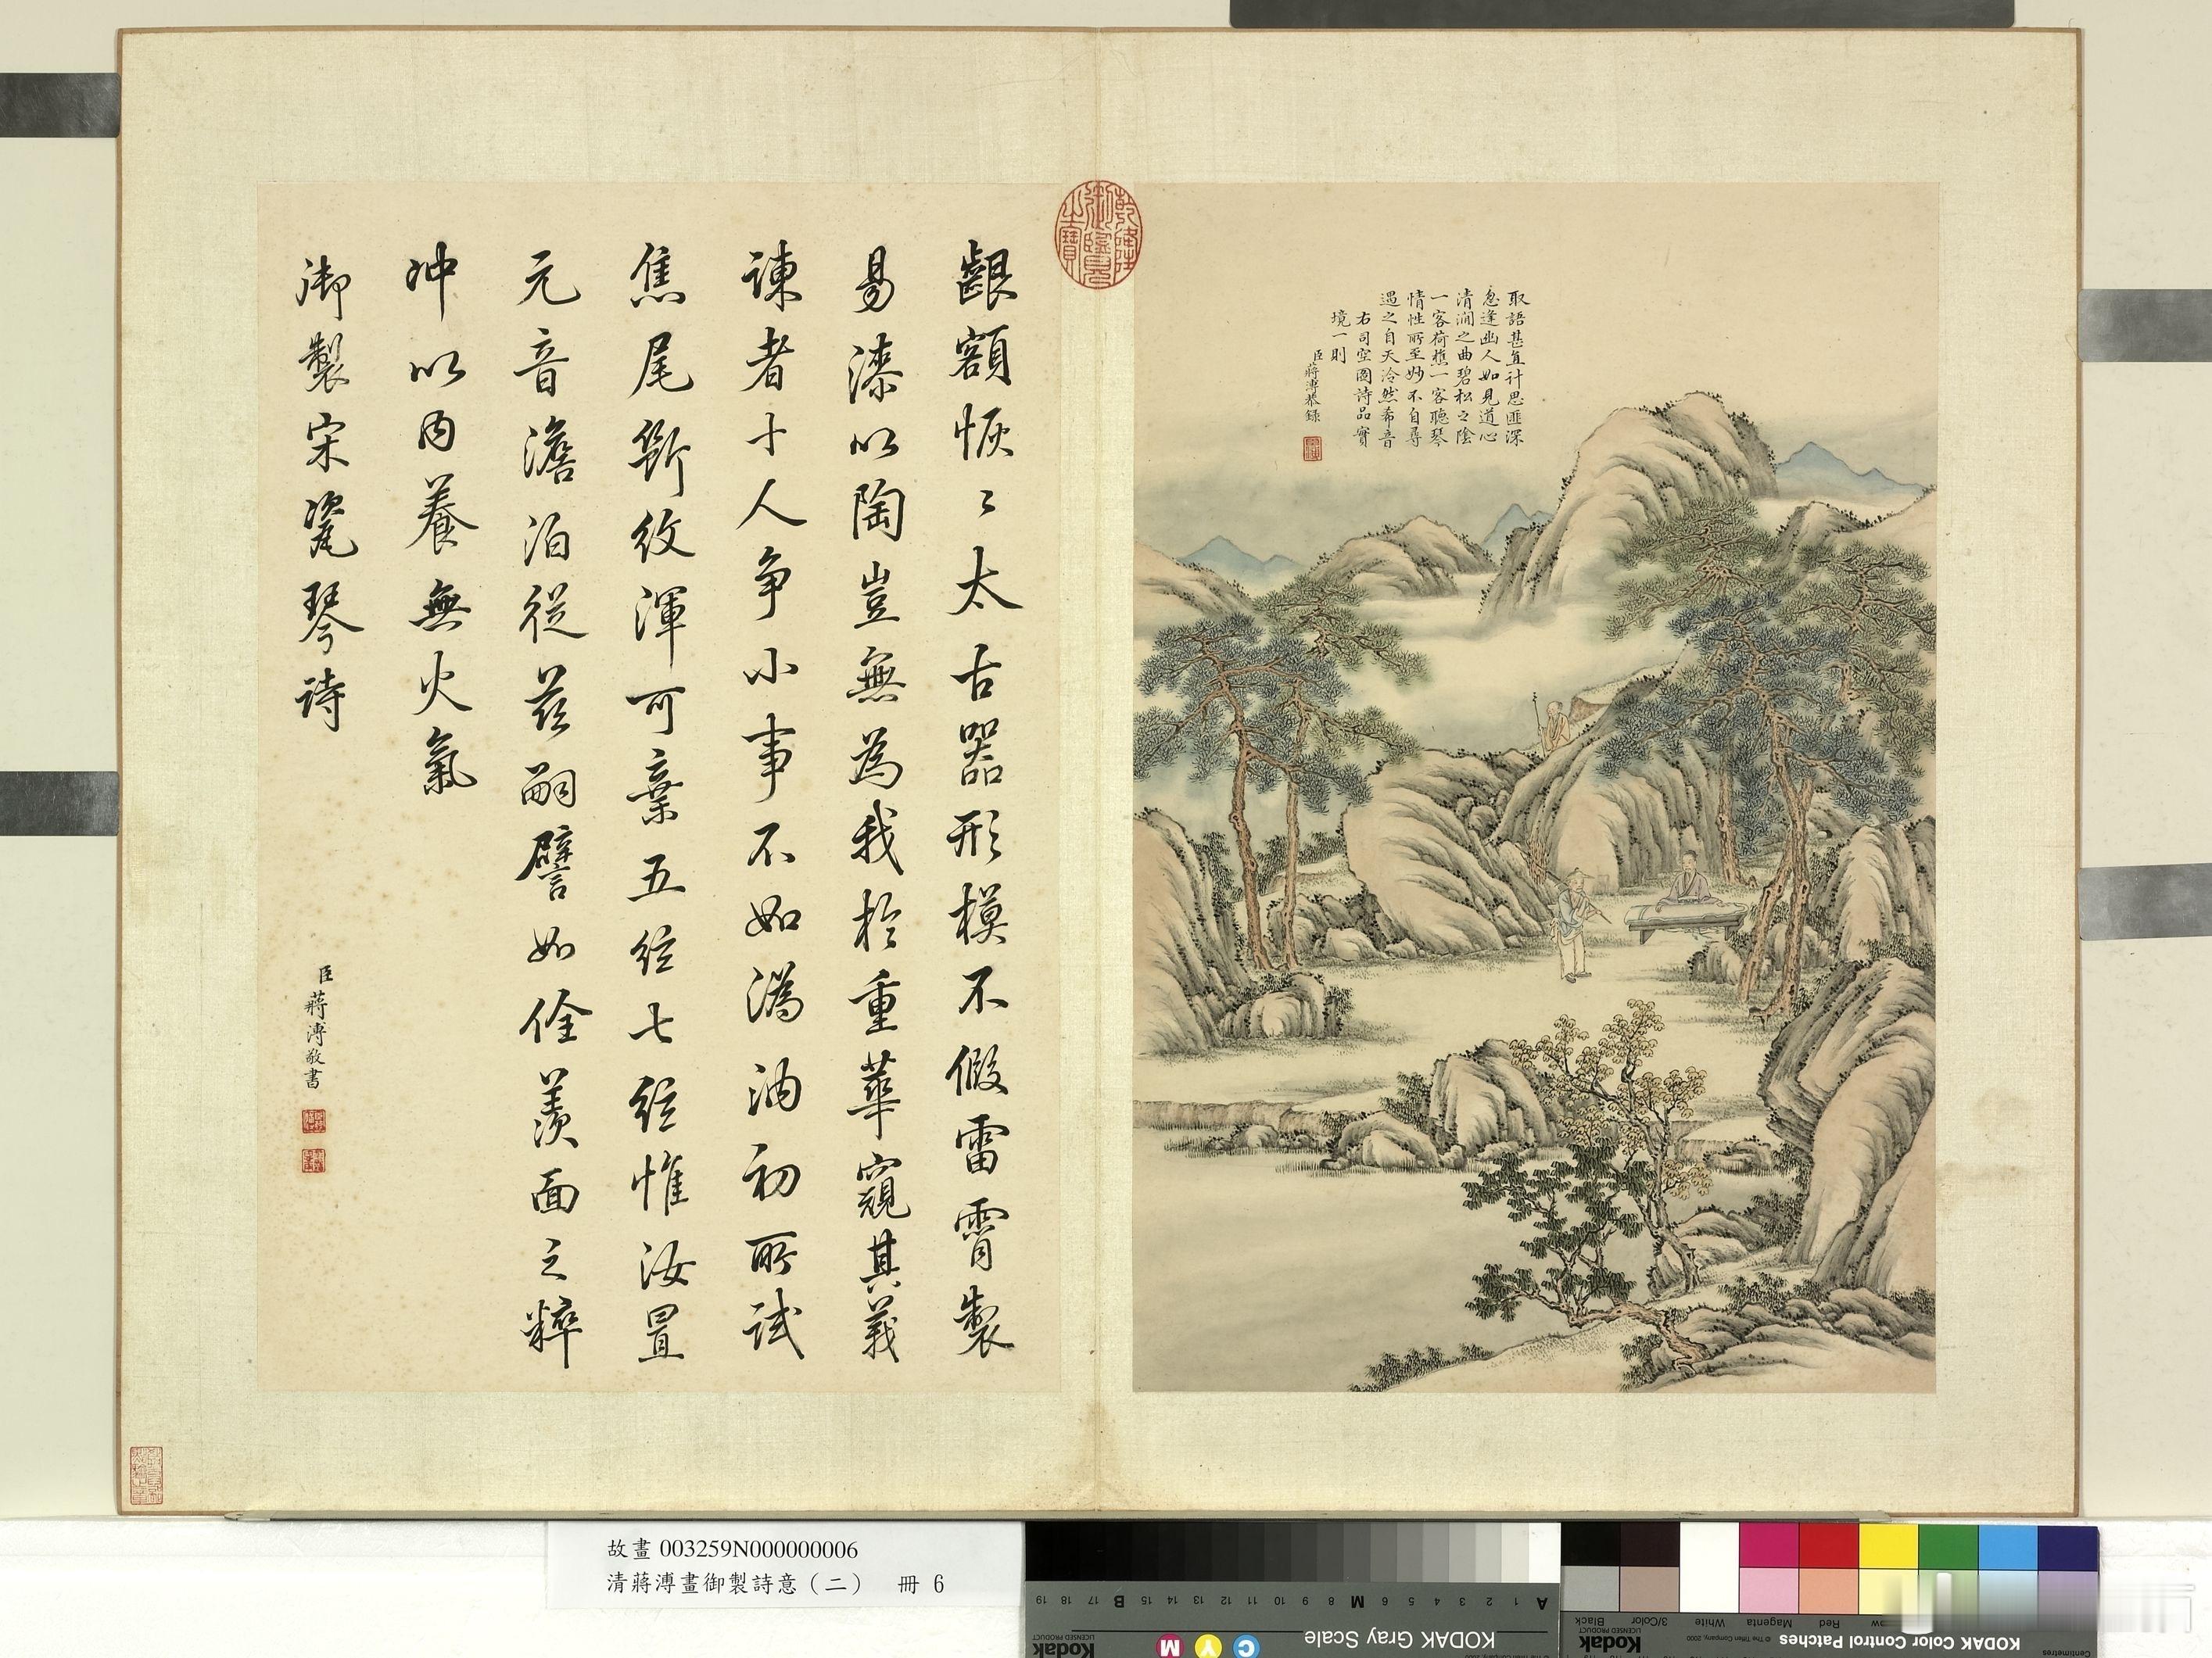 取語甚直計思匪深
忽逢幽人如見道心
清澗之曲碧松之陰
一客荷樵一客聽琴
情性所至妙不自尋
遇之自天泠然希音
右司空圖詩品實
境一則
臣蔣溥恭録
乾隆御覽之寶
齦額恢〻太古器形模不假雷霄製
易漆以陶豈無為我於重華窺其義
諫者十人爭小事不如溈汭初所試
焦尾斷紋渾可棄五絃七絃惟汝置
元音澹泊從茲嗣譬如佺羨面之粹
沖以內養無火氣
御製宋瓷琴詩
臣蔣溥敬書
故畫 003259N000000006
清蔣溥畫御製詩意（二） 冊 6
KODAK Gray Scale
Kodak
LICENSED PRODUCT
C Y M
A 1 2 3 4 5 6 M 8 9 10 11 12 13 14 15 B 17 18 19
KODAK Color Control Patches
© The Tiffen Company, 2000
Kodak
LICENSED PRODUCT
Centimetres
Red Magenta White 3/Color Black